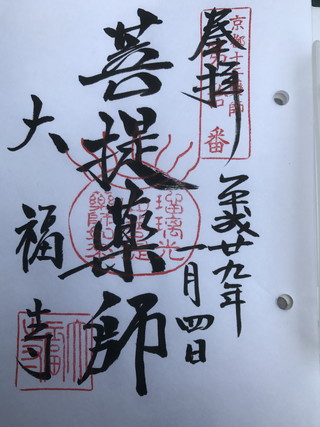 奉拝
平成廿九年
一月四日
菩提薬師
大福寺
京都十二薬師
番
瑠璃光